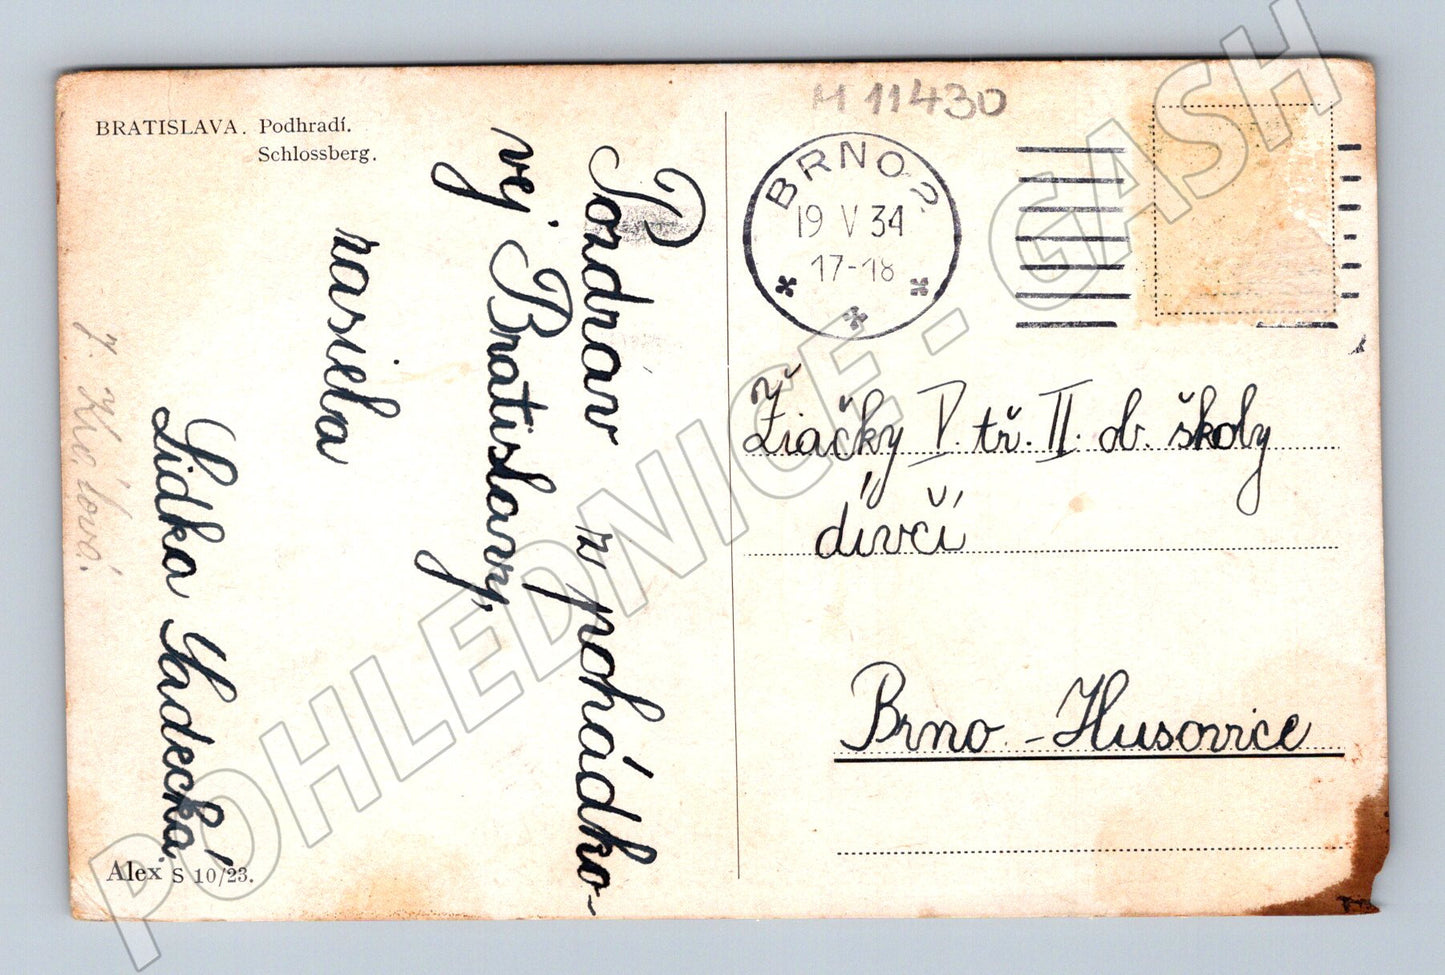 BRATISLAVA. Podhradí.
Schlossberg.
Pozdrav z pohádko-
vej Bratislavy,
zasiela
Lidka Sadecká.
Alex S 10/23.
M 11430
BRNO 2
19 V 34
17-18
Žiačky V. tř. II. ob. školy
dívčí
Brno - Husovice
POHLEDNICE - GASH